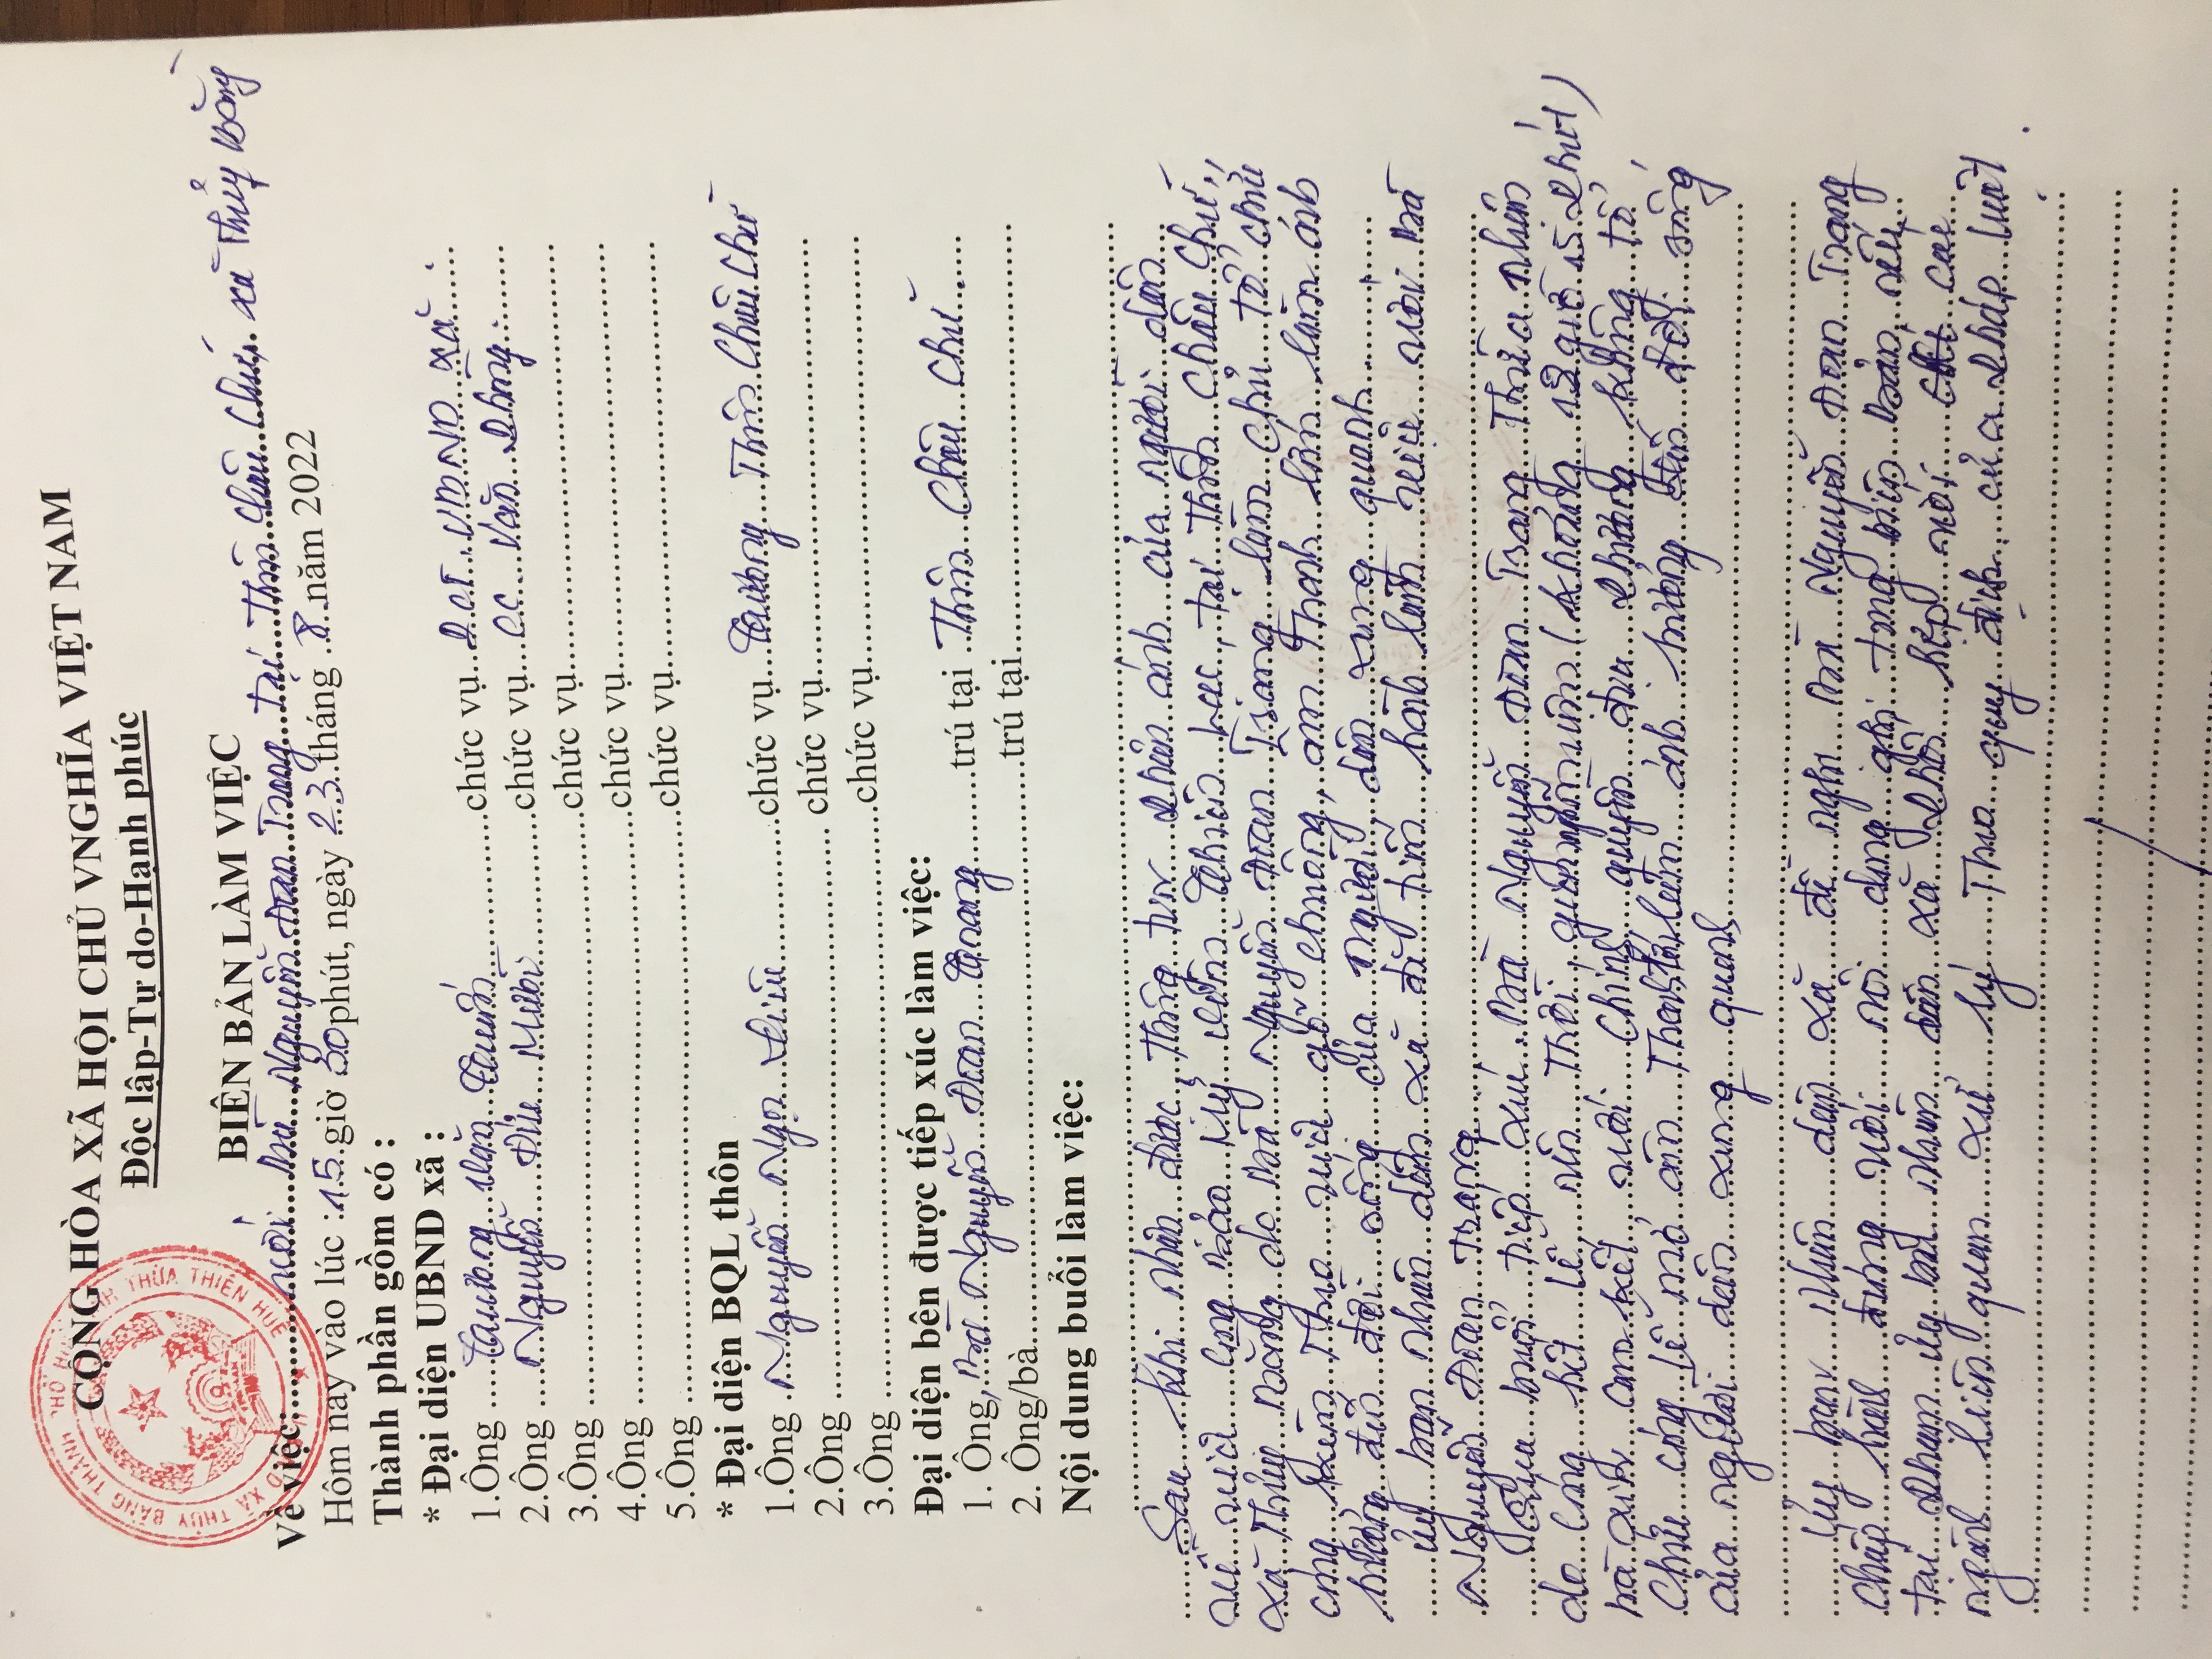 CỘNG HÒA XÃ HỘI CHỦ VNGHĨA VIỆT NAM
Độc lập-Tự do-Hạnh phúc
BIÊN BẢN LÀM VIỆC
Về việc: với Bà Nguyễn Đoan Trang tại Thôn Châu Chữ, xã Thủy Bằng
Hôm nay vào lúc :15 giờ 30 phút, ngày 23 tháng 8 năm 2022
Thành phần gồm có :
* Đại diện UBND xã :
1.Ông Trương Văn chức vụ P.CT UBND xã
2.Ông Nguyễn Đức Mười chức vụ CC Văn phòng
3.Ông chức vụ
4.Ông chức vụ
5.Ông chức vụ
* Đại diện BQL thôn
1.Ông Nguyễn Ngọc chức vụ Trưởng Thôn Châu Chữ
2.Ông chức vụ
3.Ông chức vụ
Đại diện bên được tiếp xúc làm việc:
1. Ông, Bà Nguyễn Đoan Trang trú tại Thôn Châu Chữ
2. Ông/bà trú tại
Nội dung buổi làm việc:
Sau khi nhận được thông tin phản ánh của người dân
về việc Tịnh Thiên Lạc, tại Thôn Châu Chữ,
xã Thủy Bằng do bà Nguyễn Đoan Trang làm chủ tổ chức
cúng theo việc gõ chuông, âm thanh lớn làm ảnh
hưởng đến đời sống của người dân xung quanh.
Ủy ban nhân dân xã đã tiến hành làm việc với bà
Nguyễn Đoan Trang.
Qua buổi tiếp xúc bà Nguyễn Đoan Trang thừa nhận
do cúng lễ nên thời gian (khoảng 19 giờ phút)
bà xin cam kết với chính quyền địa phương không tổ
chức cúng lễ mở âm thanh ảnh hưởng đến đời sống
của người dân xung quanh
Ủy ban nhân dân xã đề nghị bà Nguyễn Đoan Trang
chấp hành đúng với nội dung ghi trong biên bản, nếu
tái phạm ủy ban nhân dân xã phối hợp với các
ngành liên quan xử lý theo quy định của pháp luật.